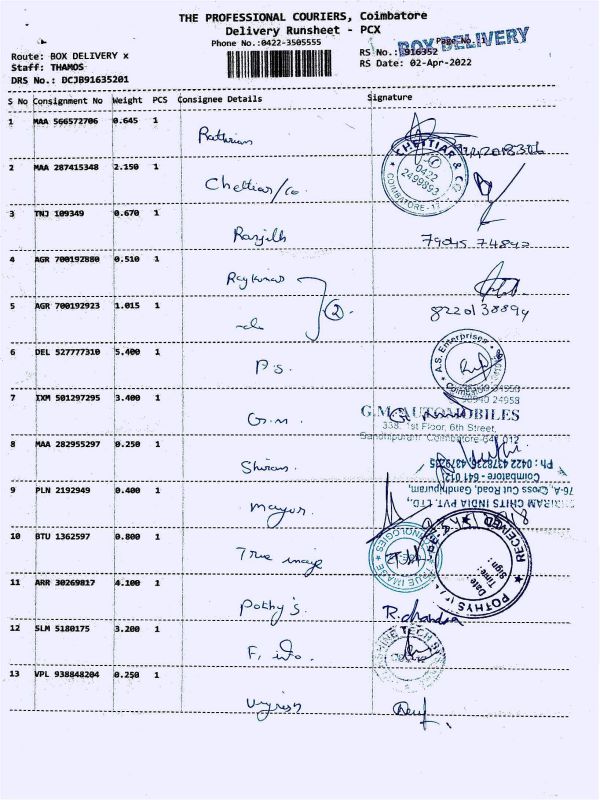 THE PROFESSIONAL COURIERS, Coimbatore
Delivery Runsheet - PCX
Phone No.:0422-3505555
Page No.:1
BOX DELIVERY
Route: BOX DELIVERY x
RS No.:916352
Staff: THAMOS
RS Date: 02-Apr-2022
DRS No.: DCJB91635201
S No Consignment No Weight PCS Consignee Details Signature
1 MAA 566572706 0.645 1
CHETTIAR & CO
0422
2499893
COIMBATORE-1
2 MAA 287415348 2.150 1
Chettiar/co.
3 TNJ 109349 0.670 1
Ranjith
4 AGR 700192880 0.510 1
Rajkumar
2
8220138894
5 AGR 700192923 1.015 1
A.S. Enterprises
Coimbatore
6 DEL 527777310 5.400 1
P.S.
98940 24958
7 IXM 501297295 3.400 1
G.M. AUTOMOBILES
338, 1st Floor, 6th Street,
Gandhipuram Coimbatore-641 012
G.M.
8 MAA 282955297 0.250 1
Ph : 0422 4378236, 4379235
Coimbatore - 641 012
76-A, Cross Cut Road, Gandhipuram,
SHRIRAM CHITS INDIA PVT. LTD.,
Shriram.
9 PLN 2192949 0.400 1
Mayur
10 BTU 1362597 0.800 1
TRUE IMAGE TECHNOLOGIES
RECEIVED
Date :
Time :
Sign :
POTHYS
True image
11 ARR 30269817 4.100 1
Pothy's
R. chandra
12 SLM 5180175 3.200 1
TECH
F. info.
13 VPL 938848204 0.250 1